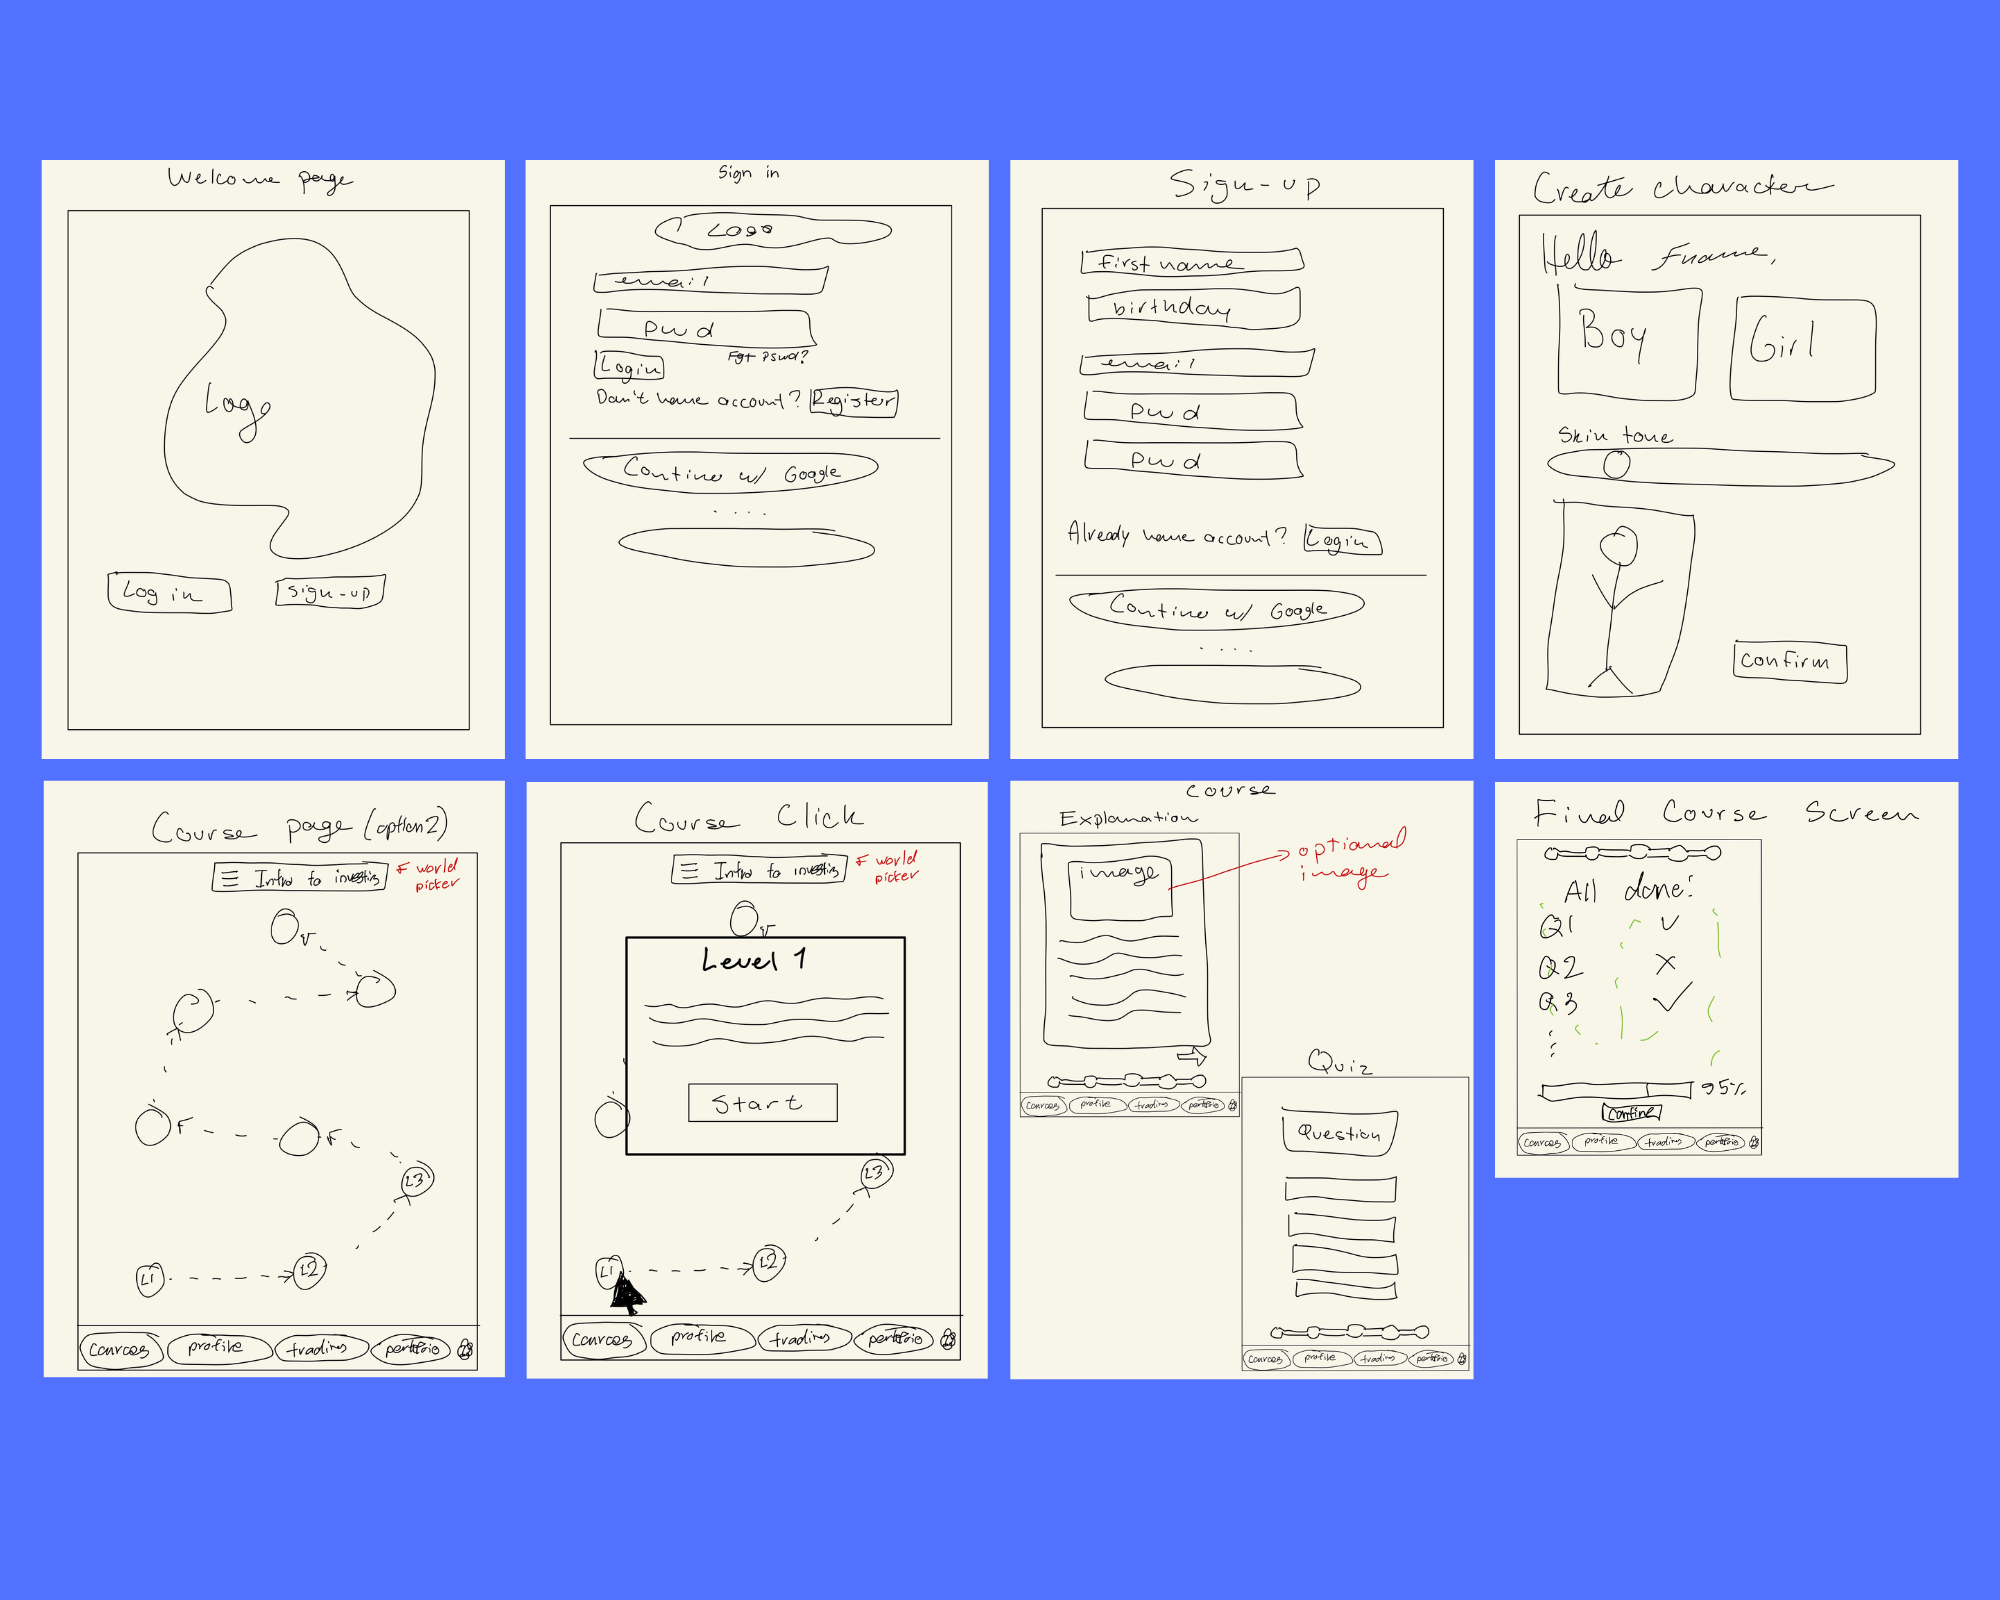 Welcome page
Logo
Log in
Sign-up
Sign in
Logo
email
pwd
Fgt Pswd?
Login
Don't have account? Register
Continue w/ Google
. . . .
Sign-up
first name
birthday
email
pwd
pwd
Already have account? Login
Continue w/ Google
. . . .
Create character
Hello Fname,
Boy
Girl
Skin tone
confirm
Course page (option2)
Intro to investing
world
picker
L3
L1
L2
courses
profile
trading
portfolio
Course Click
Intro to investing
world
picker
Level 1
Start
L3
L1
L2
courses
profile
trading
portfolio
course
Explanation
image
optional
image
courses
profile
trading
portfolio
Quiz
Question
courses
profile
trading
portfolio
Final Course Screen
All done!
Q1
Q2
Q3
95%
Continue
courses
profile
trading
portfolio